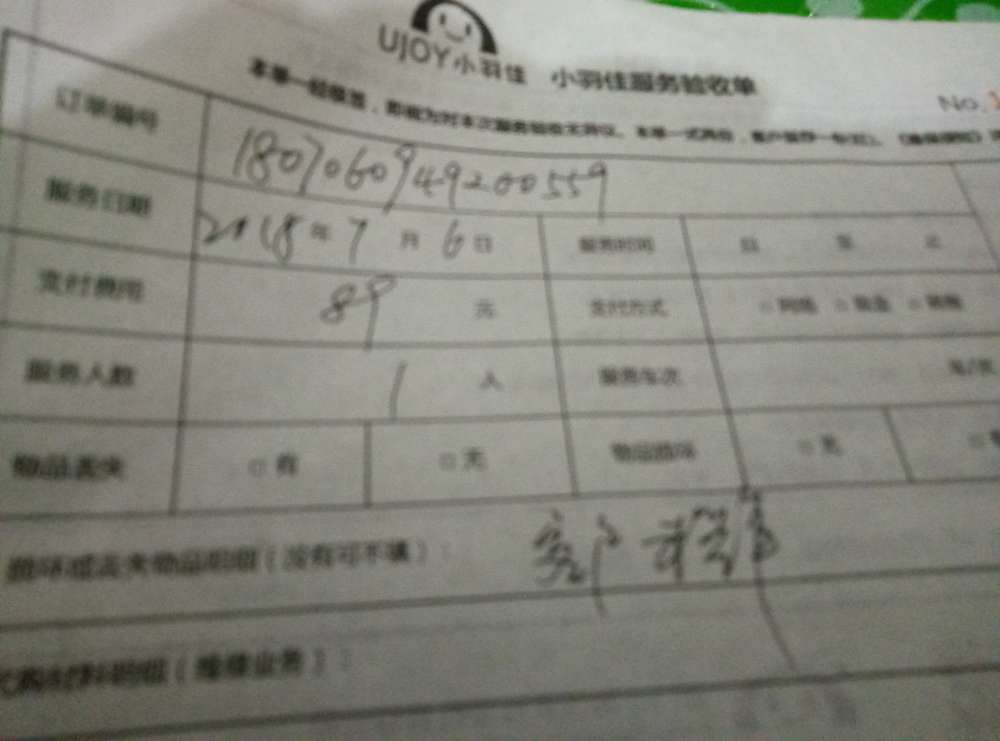 UJOY小羽佳 小羽佳服务验收单
No.
本单一经签署，即视为对本次服务验收无异议。本单一式两份，客户留存一份
订单编号 1807060949200559
服务日期 2018年7月6日 服务时间 自 至 止
支付费用 89元 支付方式 □网络 □现金
服务人数 1人 服务车次
物品丢失 □有 □无 物品损坏 □无
损坏或丢失物品明细（没有可不填）： 客户
材料明细（维修业务）：